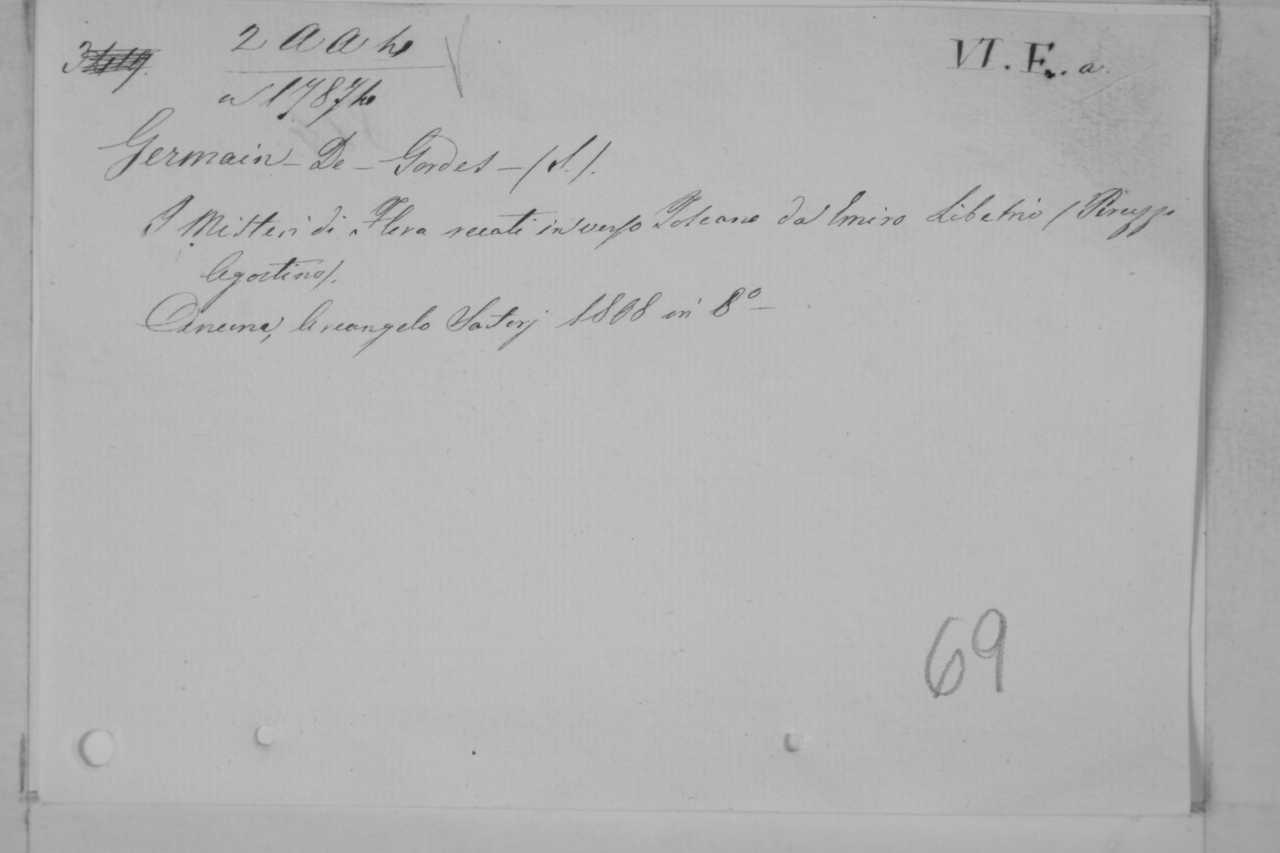 2 A A h
VI. F. a.
n 1787 h
Germain - De - Gordes - (S.).
I Misteri di Flora recati in verso Toscano da Emiro Libetrio (Peruzzi
Agostino).
Ancona, Arcangelo Sartorj 1808 in 8º -
69